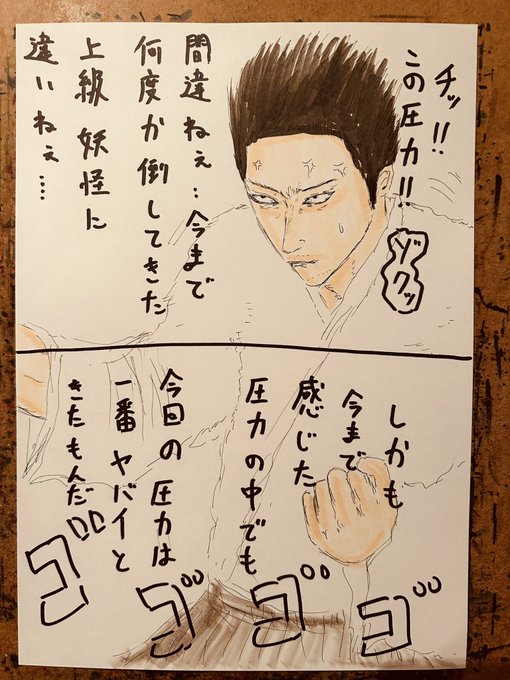 チッ!!
この圧力!!
ゾクッ
間違ねぇ…今まで
何度か倒してきた
上級妖怪に
違いねぇ…
しかも
今まで
感じた
圧力の中でも
今回の圧力は
一番ヤバイと
きたもんだ
ゴ
ゴ
ゴ
ゴ